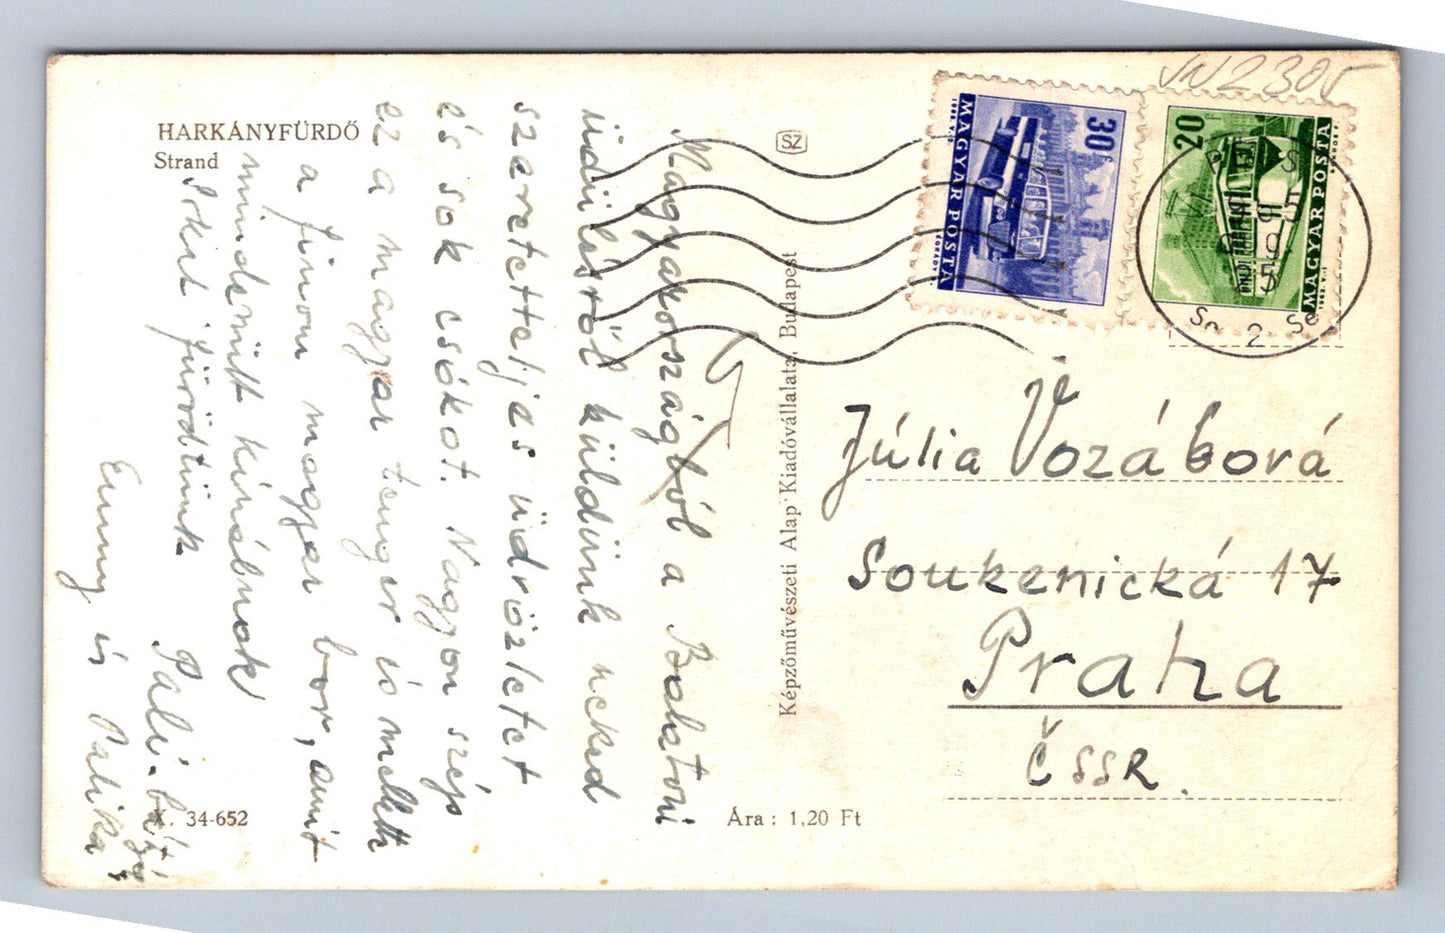 HARKÁNYFÜRDŐ
Strand
Magyarországból a Balatoni
üdülésről küldünk neked
szeretetteljes üdvözletet
és sok csókot. Nagyon szép
ez a magyar tenger is mellette
a finom magyar bor, amit
mindenütt kínálnak
fürödtünk Pali-bátyó
és Palika
X. 34-652
Ára : 1,20 Ft
Képzőművészeti Alap Kiadóvállalata, Budapest
SZ
VN2305
30f
MAGYAR POSTA
20
MAGYAR POSTA
2
Júlia Vozábová
Soukenická 17
Praha
ČSSR.